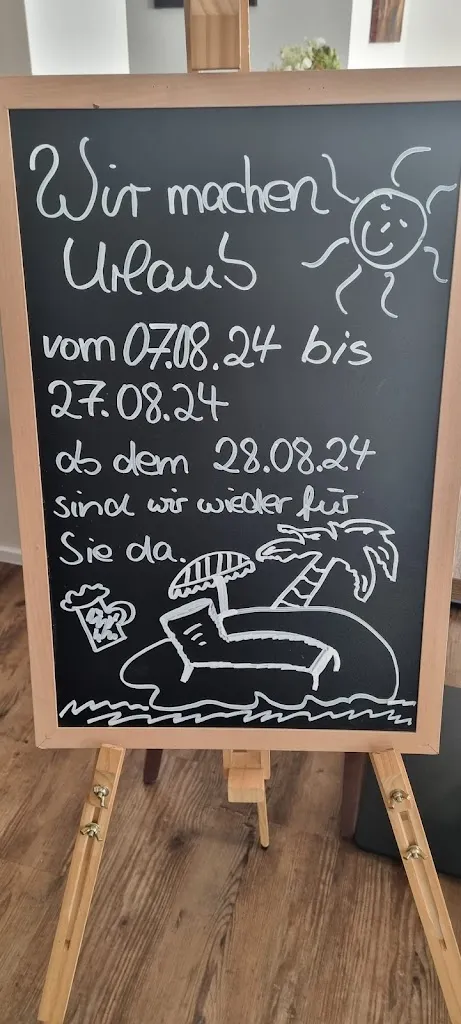 Wir machen
Urlaub
vom 07.08.24 bis
27.08.24
ab dem 28.08.24
sind wir wieder für
Sie da.